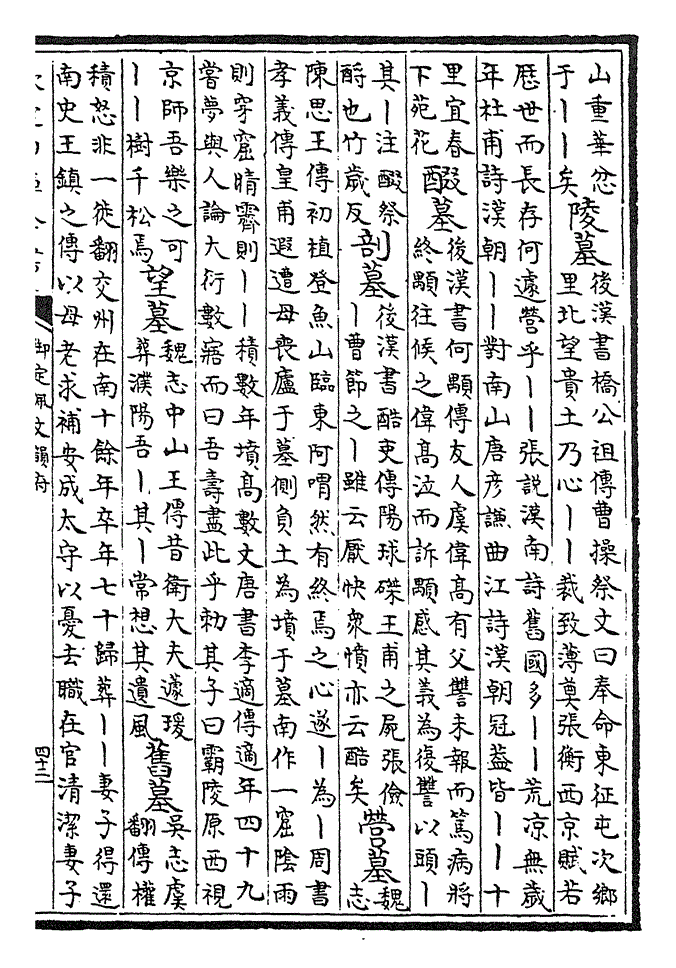 山重華忽
于｜｜矣
陵墓
後漢書橋公祖傳曹操祭文曰奉命東征屯次鄉
里北望貴土乃心｜｜裁致薄奠張衡西京賦若
歷世而長存何遽營乎｜｜張說漢南詩舊國多｜｜荒凉無歲
年杜甫詩漢朝｜｜對南山唐彥謙曲江詩漢朝冠葢皆｜｜十
里宜春
下苑花
醊墓
後漢書何顒傳友人虞偉高有父讐未報而篤病將
終顒往候之偉高泣而訴顒感其義為復讐以頭｜
其｜注醊祭
酹也竹歲反
剖墓
後漢書酷吏傳陽球磔王甫之屍張儉
｜曹節之｜雖云厭快衆憤亦云酷矣
營墓
魏
志
陳思王傳初植登魚山臨東阿喟然有終焉之心遂｜為｜周書
孝義傳皇甫遐遭母喪廬于墓側負土為墳于墓南作一窟陰雨
則穿窟晴霽則｜｜積數年墳高數文唐書李適傳適年四十九
嘗夢與人論大衍數寤而曰吾壽盡此乎勑其子曰霸陵原西視
京師吾樂之可
｜｜樹千松焉
望墓
魏志中山王傳昔衛大夫蘧瑗
葬濮陽吾｜其｜常想其遺風
舊墓
吳志虞
翻傳權
積怒非一徙翻交州在南十餘年卒年七十歸葬｜｜妻子得還
南史王鎮之傳以母老求補安成太守以憂去職在官清潔妻子
御定佩文韻府
四十二